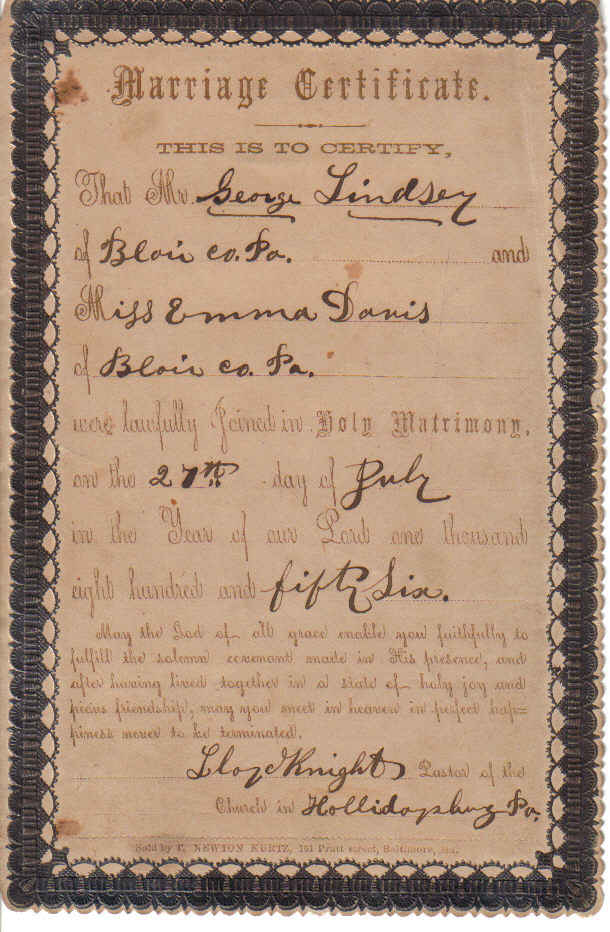 Marriage Certificate.
THIS IS TO CERTIFY,
That Mr. George Lindsey
of Blair co. Pa. and
Miss Emma Davis
of Blair co. Pa.
were lawfully Joined in Holy Matrimony,
on the 27th day of July
in the Year of our Lord one thousand
eight hundred and fifty Six.
May the God of all grace enable you faithfully to
fulfill the solemn covenant made in His presence, and
after having lived together in a state of holy joy and
pious friendship, may you meet in heaven in perfect hap=
piness never to be terminated.
Lloyd Knight Pastor of the
Church in Hollidaysburg Pa.
Sold by T. NEWTON KURTZ, 151 Pratt street, Baltimore, Md.